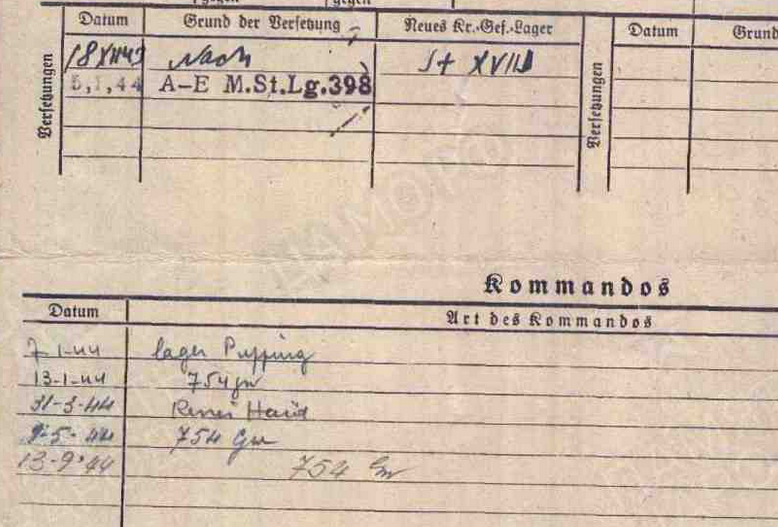 gegen gegen
Datum Grund der Versetzung Neues Kr.-Gef.-Lager Datum Grund
Versetzungen Versetzungen
18 XII 43 nach St XVII
5.1.44 A-E M.St.Lg.398
ЦАМО РФ
Kommandos
Datum Art des Kommandos
7-1-44 lager Pupping
13-1-44 754 gw
31-3-44
9-5-44 754 Gw
13-9-44 754 Gw